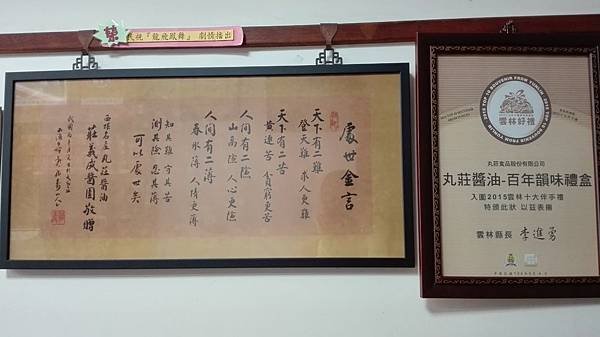 民視『龍飛鳳舞』 劇情播出
處世金言
天下有二難
登天難 求人更難
天下有二苦
黃連苦 貧窮更苦
人間有二險
山高險 人心更險
人間有二薄
春冰薄 人情更薄
知其難 守其苦
測其險 忍其薄
可以處世矣
西螺名產丸莊醬油
莊義成醬園敬贈
雲林好禮
丸莊食品股份有限公司
丸莊醬油-百年韻味禮盒
入圍2015雲林十大伴手禮
特頒此狀 以茲表揚
雲林縣長 李進勇